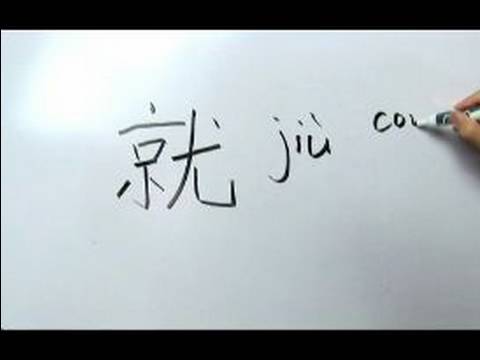 就 jiù co